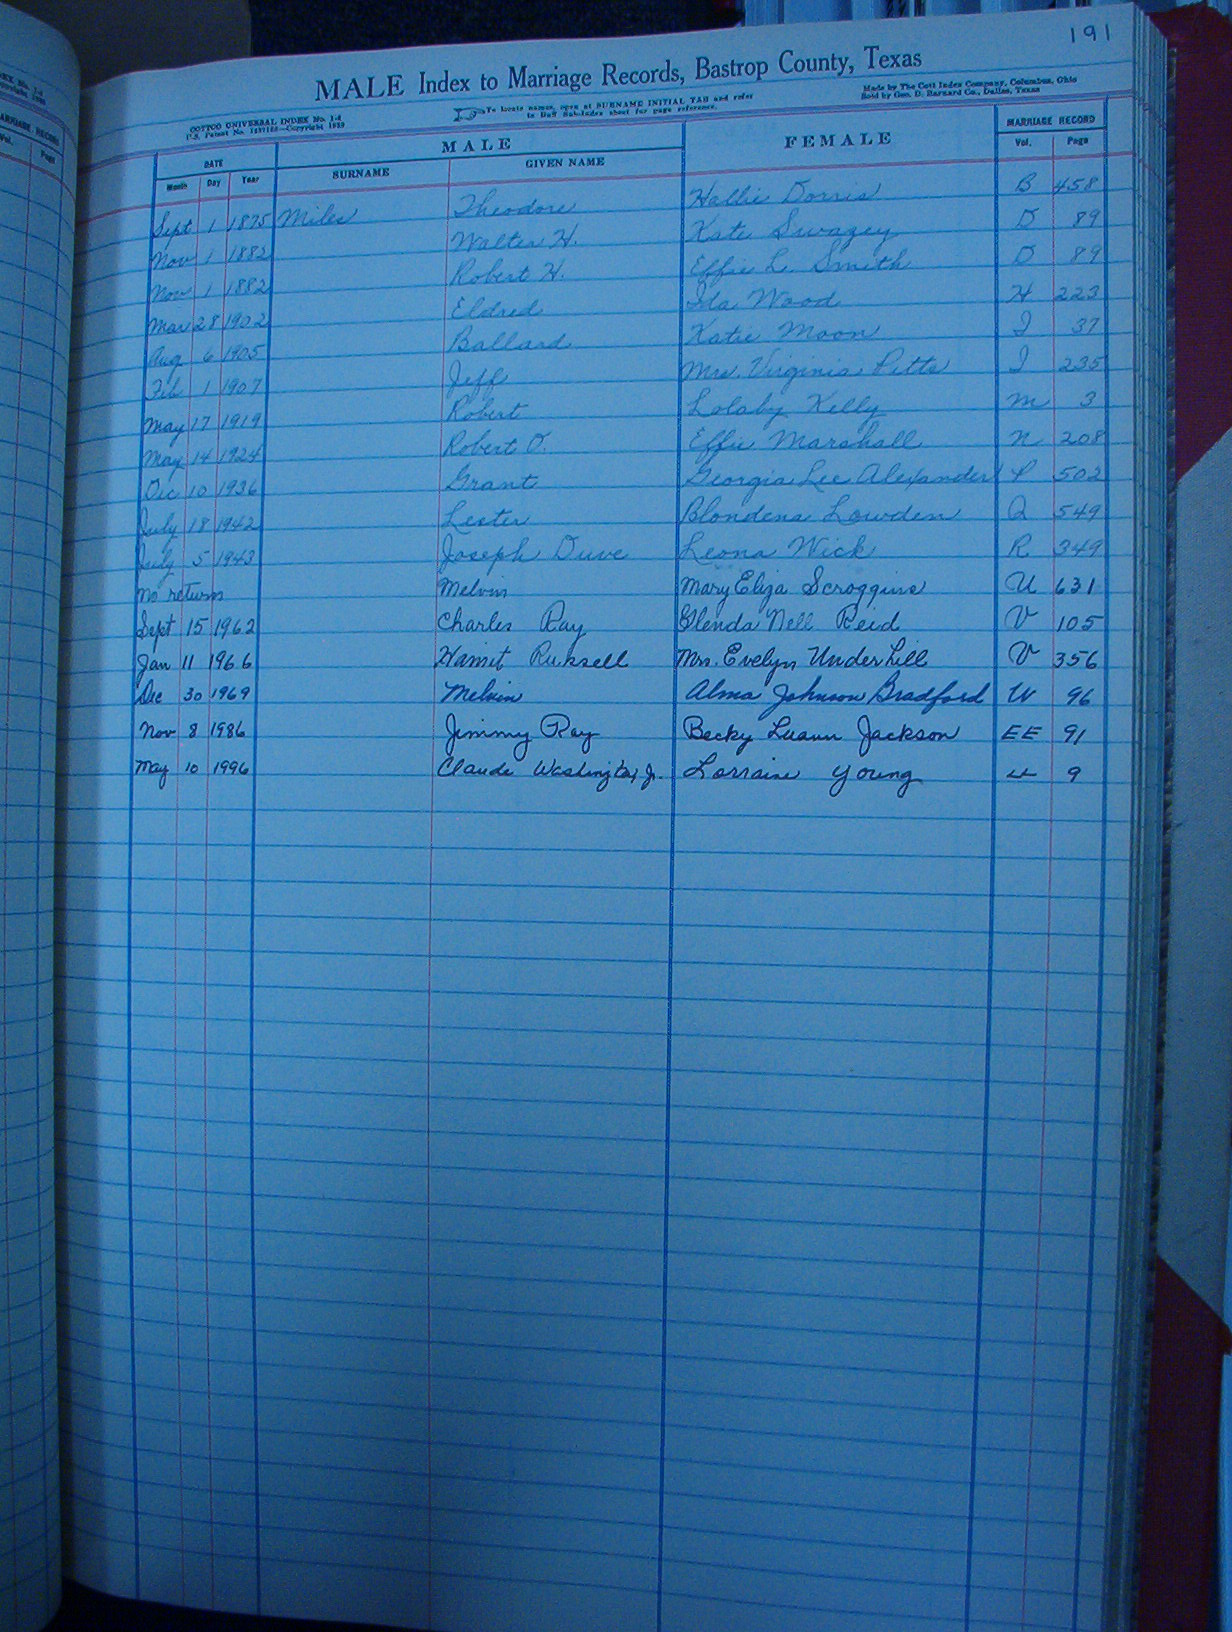 191
MALE Index to Marriage Records, Bastrop County, Texas
COTTCO UNIVERSAL INDEX No. 1-d
U.S. Patent No. Copyright 1939
To locate names, open at SURNAME INITIAL TAB and refer
to Buff Sub-Index sheet for page reference.
Made by The Cott Index Company, Columbus, Ohio
Sold by Geo. D. Barnard Co., Dallas, Texas
DATE MALE FEMALE MARRIAGE RECORD
Month Day Year SURNAME GIVEN NAME Vol. Page
Sept 1 1875 Miles Theodore Hallie Dorris B 458
Nov 1 1882 Walter H. Kate Swazey D 89
Nov 1 1882 Robert H. Effie L. Smith D 89
Mar 28 1902 Eldred Ida Wood H 223
Aug 6 1905 Ballard Katie Moon I 37
Feb 1 1907 Jeff Mrs. Virginia Pitts I 235
May 17 1919 Robert Lolaby Kelly M 3
May 14 1924 Robert O. Effie Marshall N 208
Dec 10 1936 Grant Georgia Lee Alexander P 502
July 18 1942 Lester Blondena Lowden Q 549
July 5 1943 Joseph Duve Leona Wick R 349
No return Melvin Mary Eliza Scroggins U 631
Sept 15 1962 Charles Ray Glenda Nell Reid V 105
Jan 11 1966 Mrs. Evelyn Underhill V 356
Dec 30 1969 Melvin Alma Johnson Bradford W 96
Nov 8 1986 Jimmy Ray Becky Luann Jackson EE 91
May 10 1996 Claude Washington, Jr. Lorraine Young 9